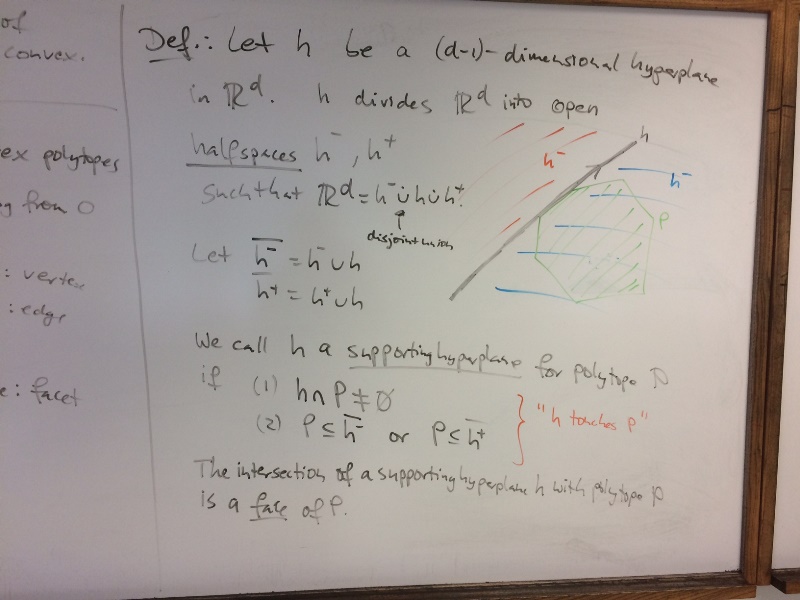 of
convex.
ex polytopes
g from 0
: vertex
: edge
e: facet
Def.: Let h be a (d-1)-dimensional hyperplane
in ℝᵈ. h divides ℝᵈ into open
halfspaces h⁻, h⁺
such that ℝᵈ = h⁻ ∪̇ h ∪̇ h⁺.
disjoint union
h
h⁻
h⁻
P
Let h̅⁻ = h⁻ ∪ h
h̅⁺ = h⁺ ∪ h
We call h a supporting hyperplane for polytope P
if (1) h ∩ P ≠ ∅
(2) P ⊆ h̅⁻ or P ⊆ h̅⁺
"h touches P"
The intersection of a supporting hyperplane h with polytope P
is a face of P.